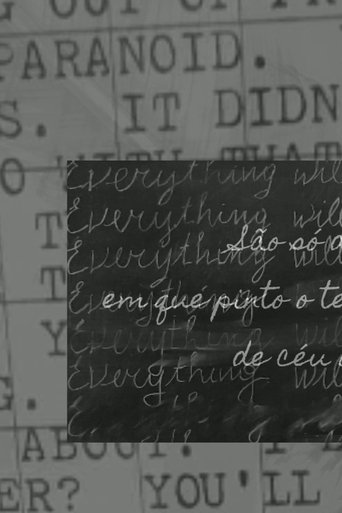 OUT OF
PARANOID.
S. IT DIDN
O WITH THAT
T
T
Y
G.
ABOUT.
ER? YOU'LL
Everything will
Everything will
Everything will
Everything will
Everything will
Everything will
São só
em que pinto o te
de céu